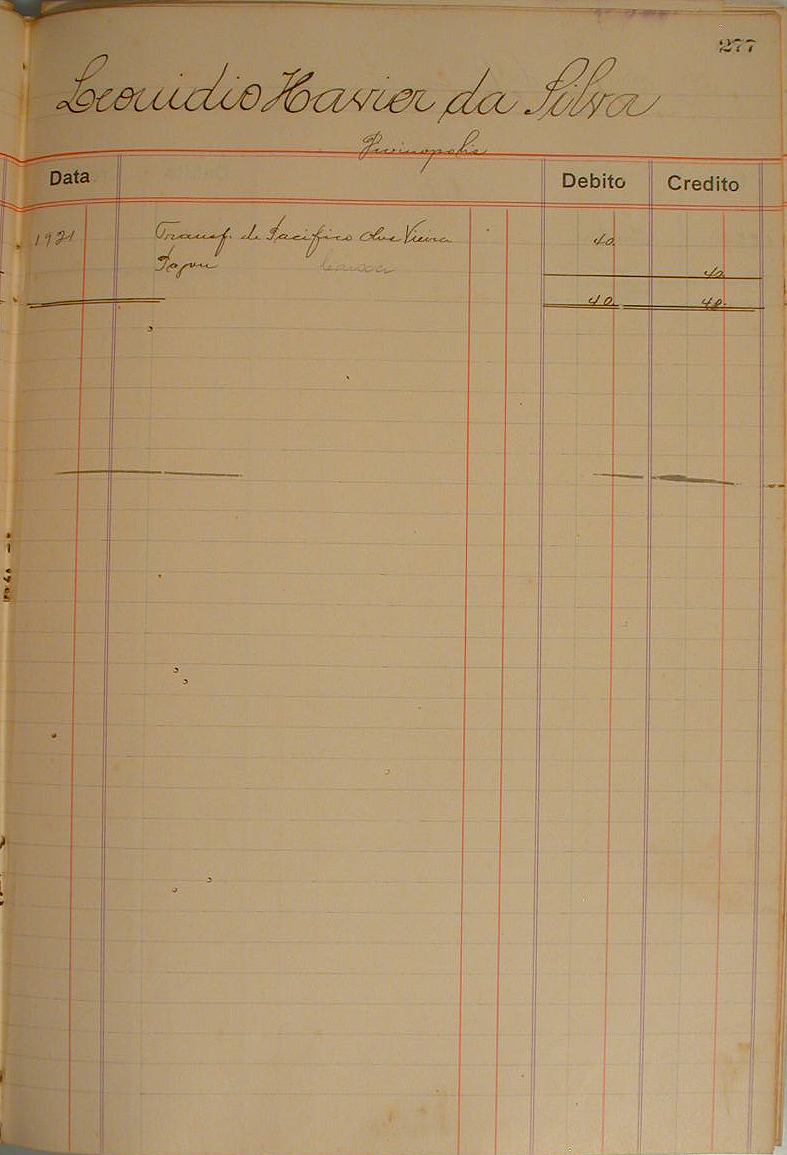 277
Leonidio Xavier da Silva
Data Debito Credito
1921 Transf. de Pacifico Vieira 40
Pagou Caixa 40
40 40